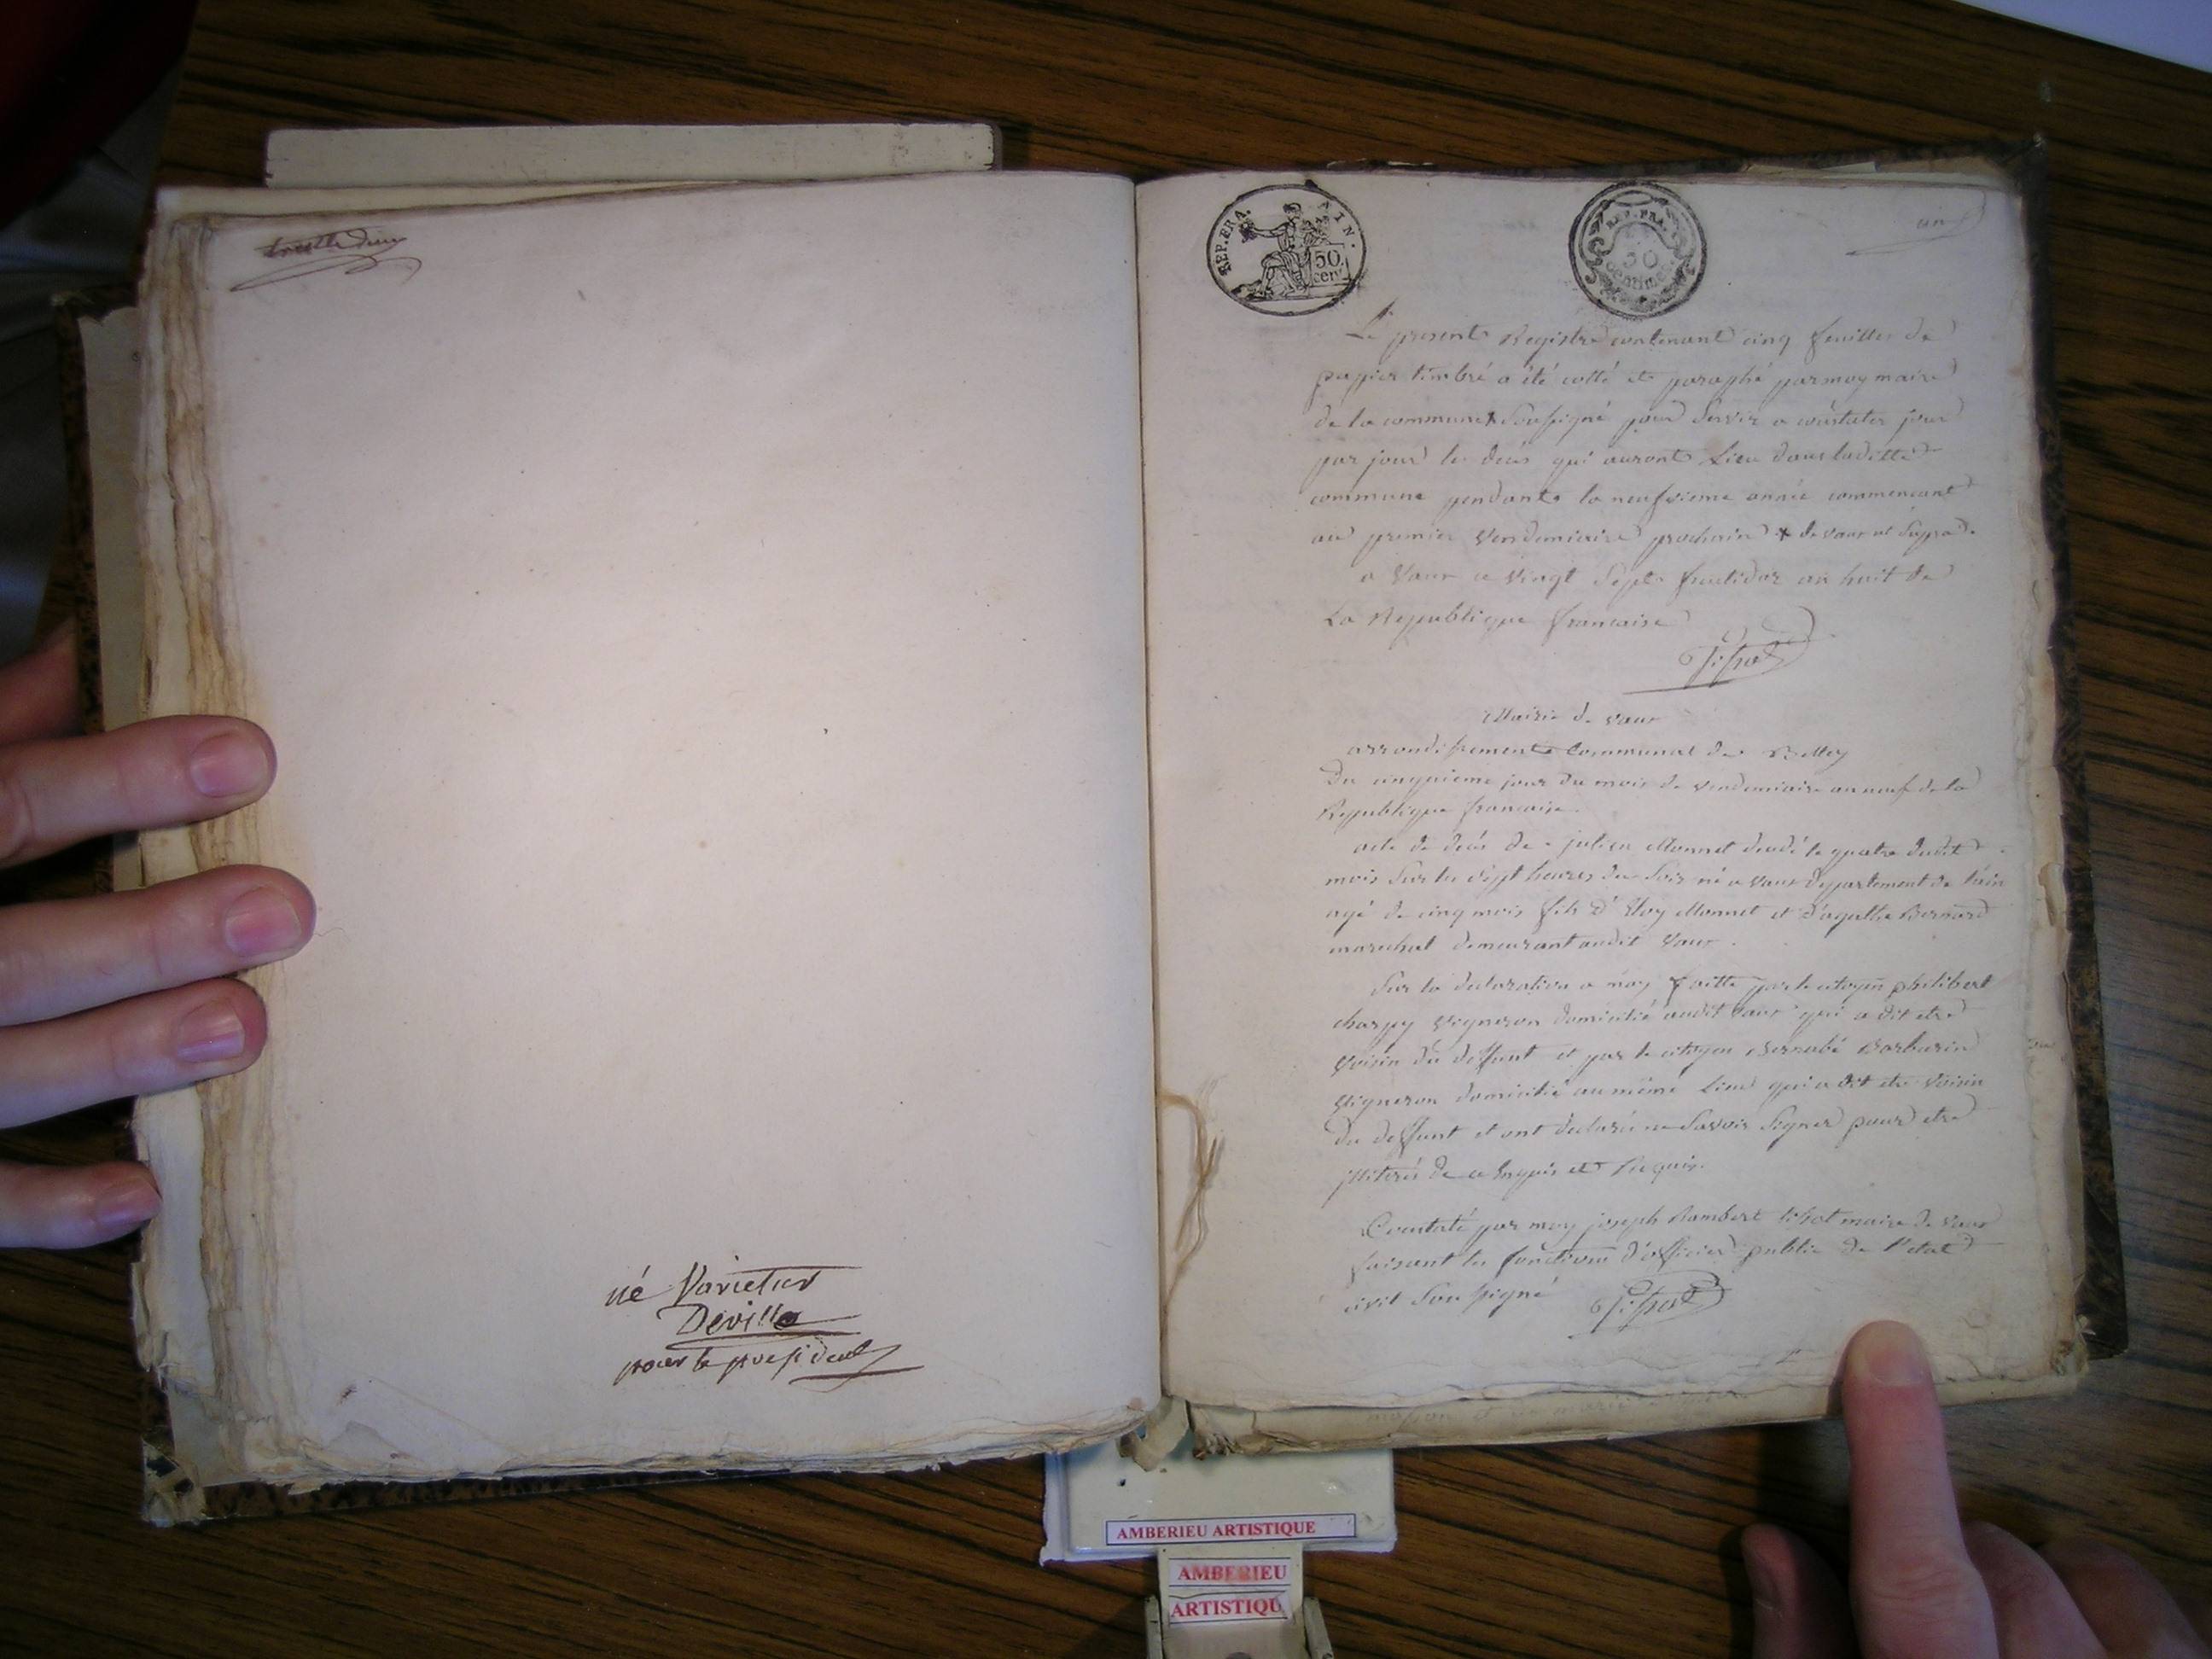 né Varietur
Deville
pour le president
REP. FRA.
50
cen.
REP. FRA.
50
centimes
un
Le present Registre contenant cinq feuilles de
papier timbré a été cotté et paraphé par moy maire
de la commune x Soussigné pour Servir a constater jour
par jour les decès qui auront Lieu dans laditte
commune pendant la neufvieme année commencant
au premier Vendemiaire prochain x de vaux ut supra.
a Vaux ce Vingt Sept fructidor an huit de
La Republique francaise
Mairie de vaux
arrondissement Communal de Belley
Du cinquieme jour du mois de vendemiaire an neuf de la
Republique francaise.
acte de decès de julien Monnet decedé le quatre dudit
mois Sur les Sept heures du Soir né a Vaux departement de l'ain
agé de cinq mois fils d'Eloy Monnet et d'agathe Bernard
marechal demeurant audit Vaux.
Sur la declaration a moy faitte par le citoyen philibert
charpy Vigneron domicilié audit Vaux qui a dit etre
Voisin du deffunt et par le citoyen Bernabé Barbarin
Vigneron domicilié au même Lieu qui a dit etre Voisin
du deffunt et ont declaré ne Savoir Signer pour etre
illiterés de ce Enquis et Requis.
Constaté par moy joseph Rambert tissot maire de vaux
faisant les fonctions d'officier public de l'etat
civil Soussigné
Tissot
AMBERIEU ARTISTIQUE
AMBERIEU
ARTISTIQU